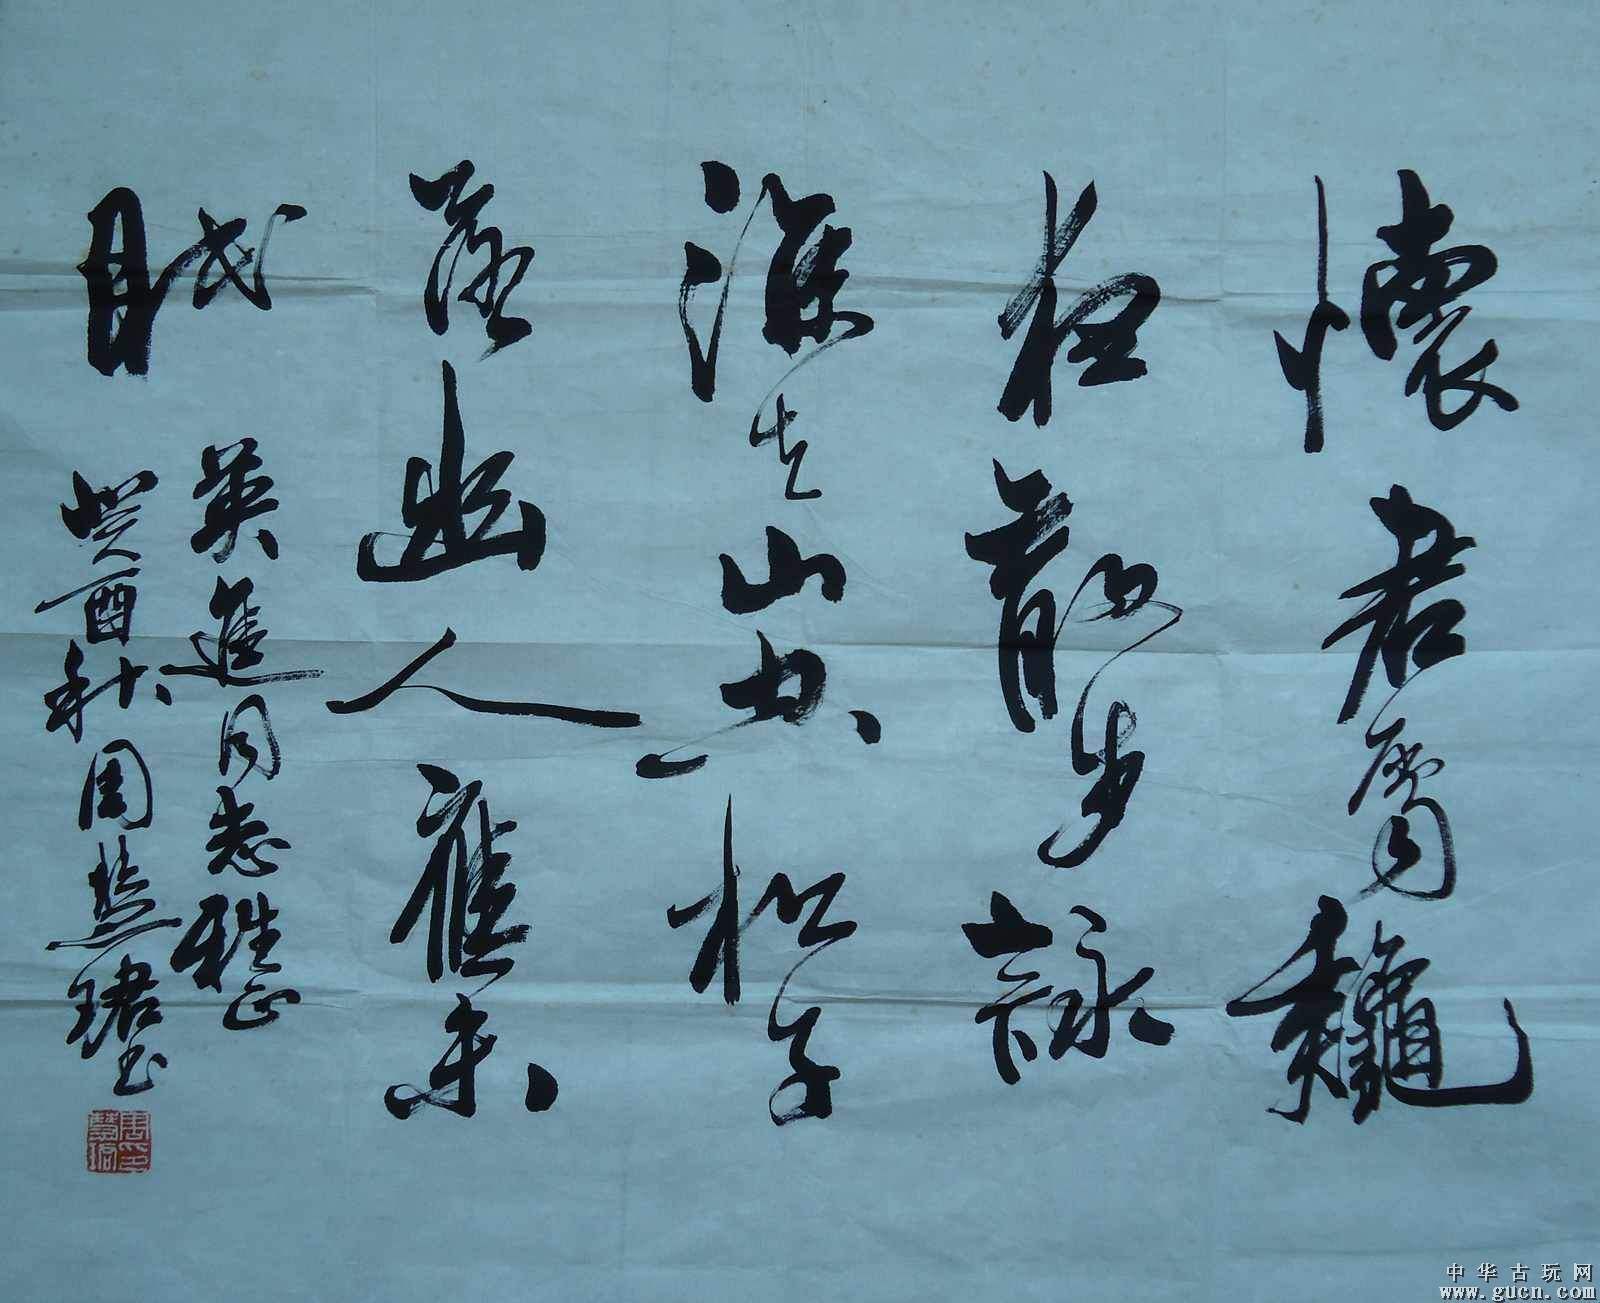 懷君屬龝
夜散步詠
涼天山空松子
落幽人應未
眠
英進同志雅正
癸酉秋周慧珺书
周慧珺印
中华古玩网
www.gucn.com